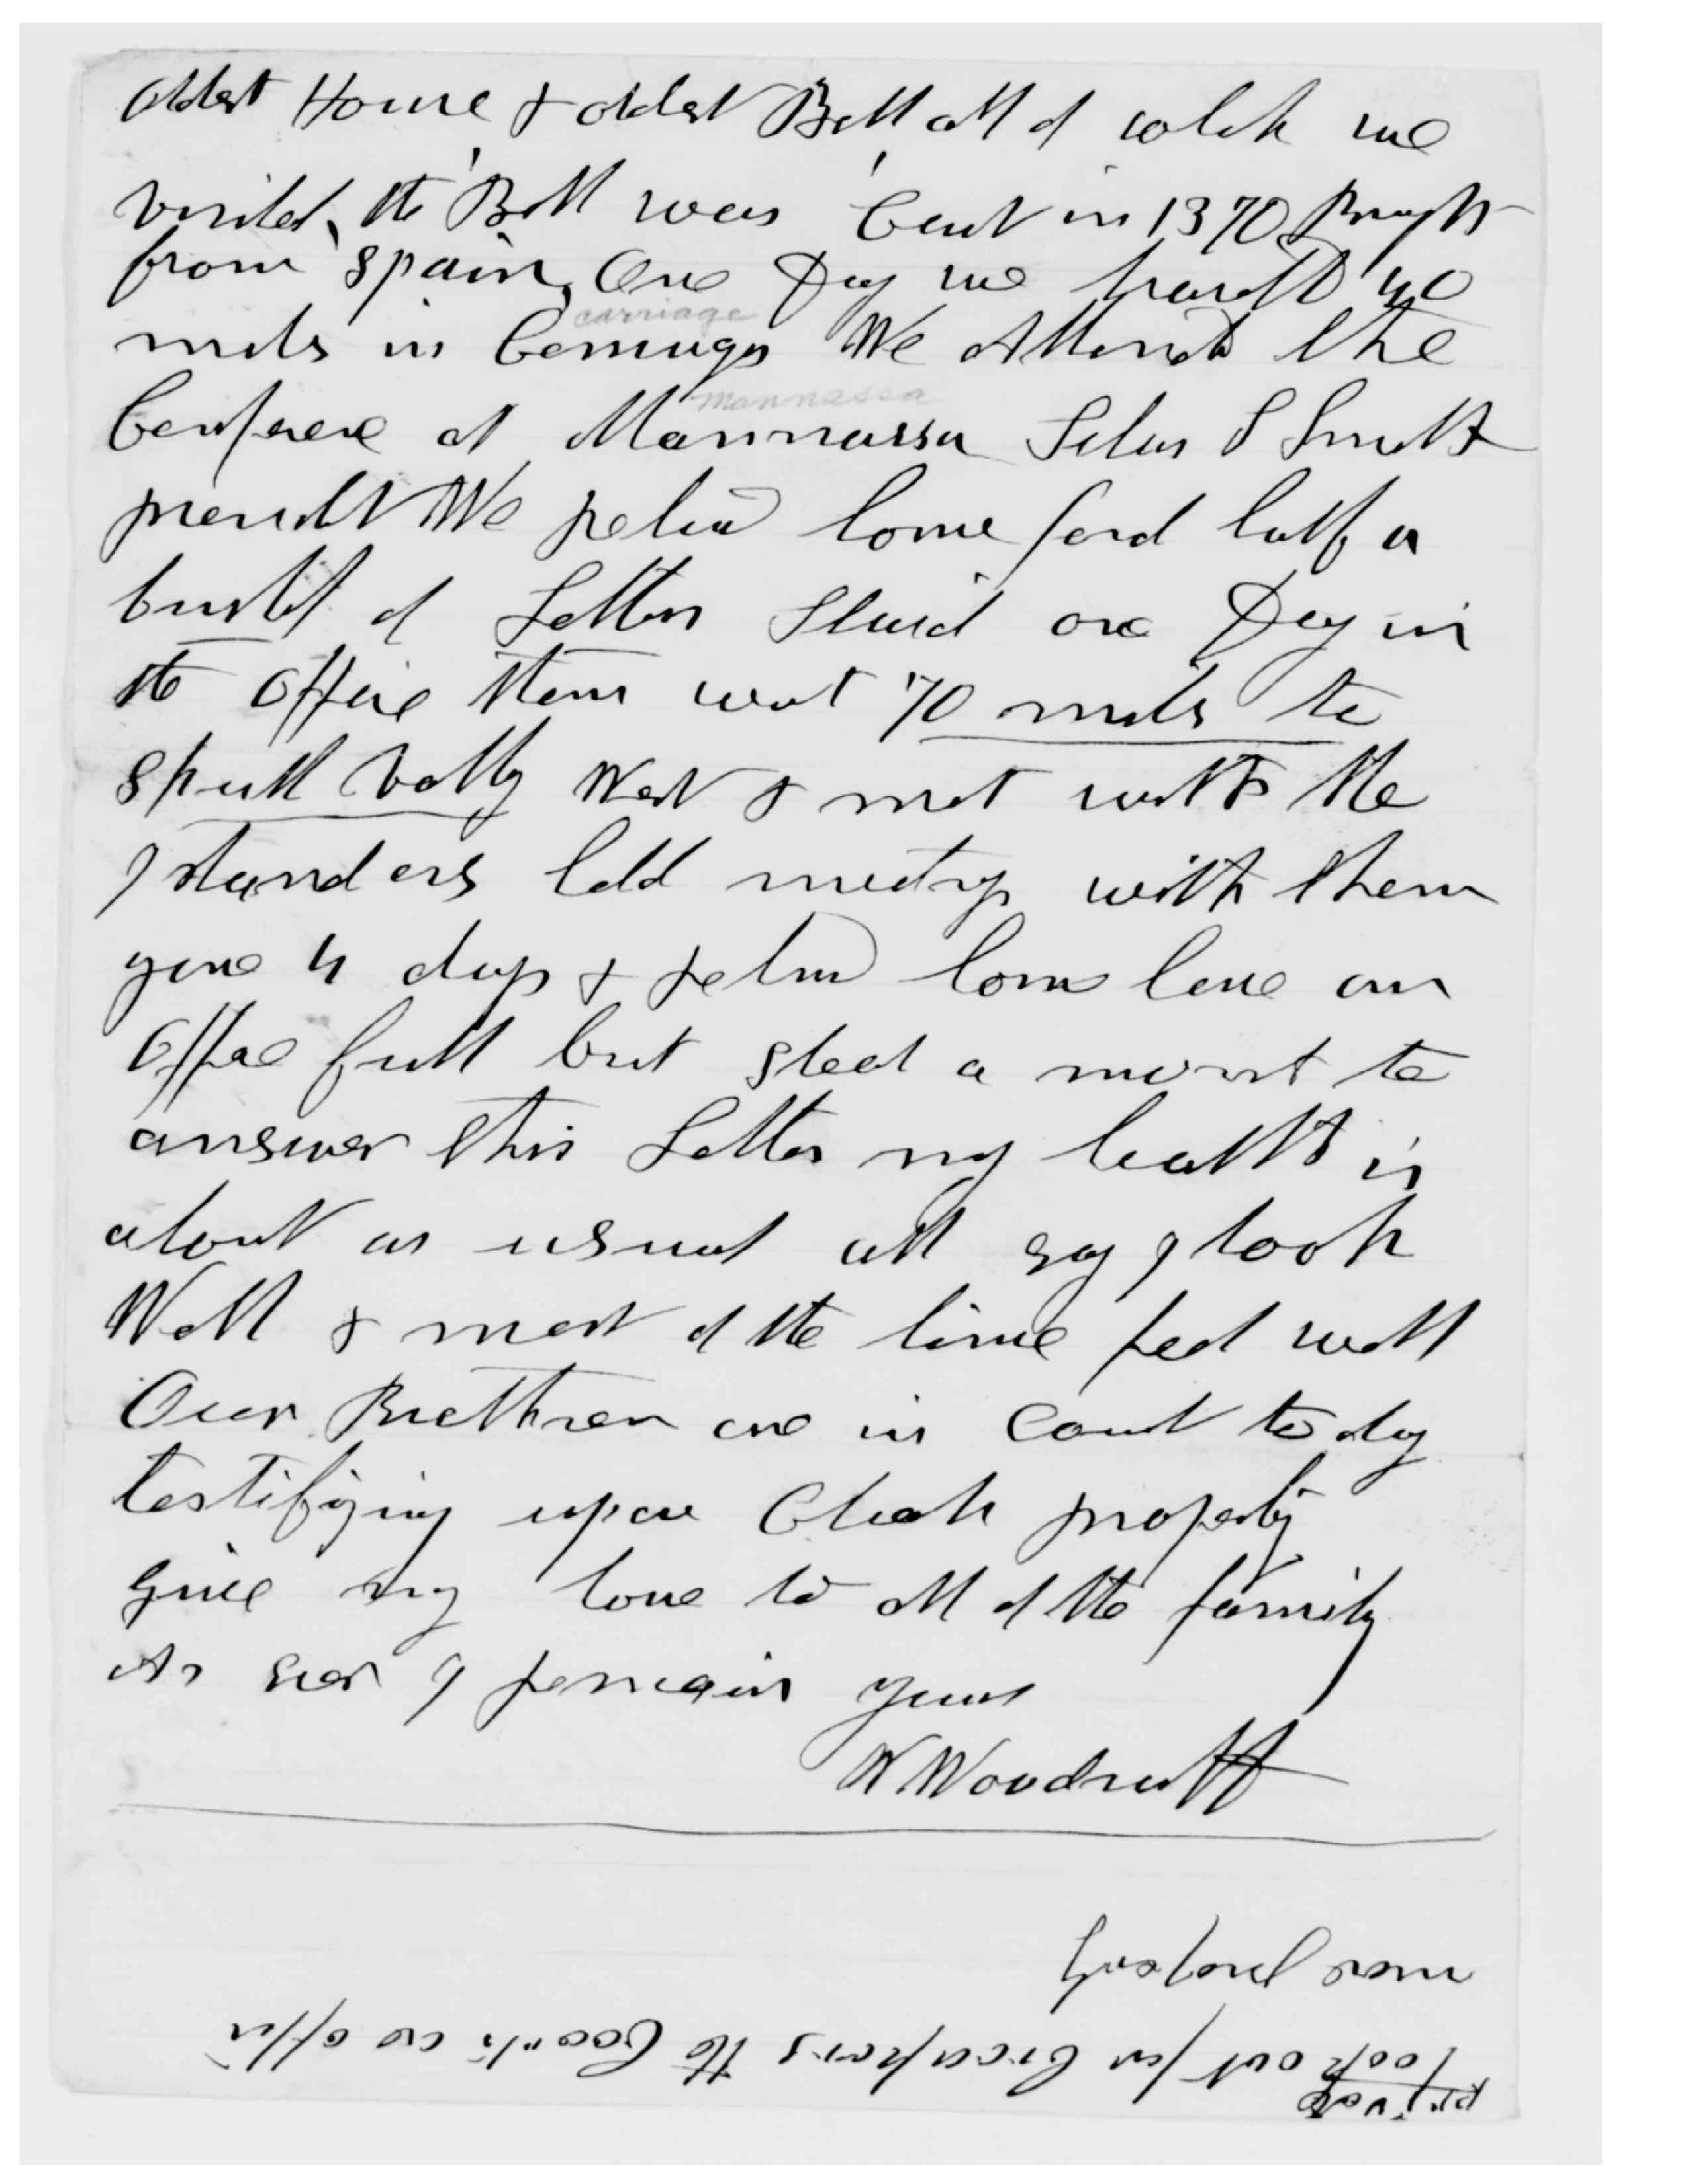 oldest House & oldest Bell all of which we
visited, the Bell was Cast in 1370 Brought
from Spain, One Day we travelld 40
carriage
miles in Carriages We Attended the
mannassa
Conference at Mannassa Silas S Smith
President We returnd home found half a
bushel of Letters Staid one Day in
the Office then went 70 miles to
Skull Vally West & met with the
Islanders held meetings with them
gone 4 days & returnd home have an
Office full but steal a moment to
answer this Letter my health is
about as usual all say I look
Well & most of the time feel well
Our Brethren are in Court to day
testifying upon Church property
give my love to all of the family
As ever I remain yours
W Woodruff
private
look out for the Courts are after
more property